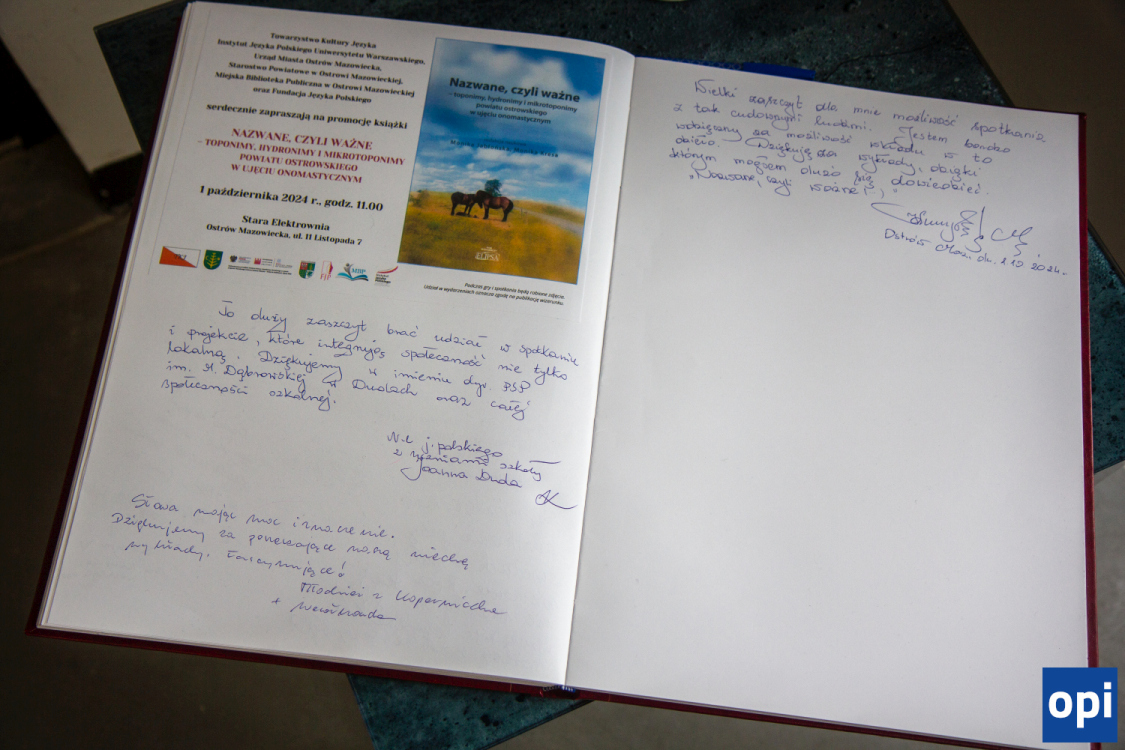 Towarzystwo Kultury Języka
Instytut Języka Polskiego Uniwersytetu Warszawskiego,
Urząd Miasta Ostrów Mazowiecka,
Starostwo Powiatowe w Ostrowi Mazowieckiej,
Miejska Biblioteka Publiczna w Ostrowi Mazowieckiej
oraz Fundacja Języka Polskiego
serdecznie zapraszają na promocję książki
NAZWANE, CZYLI WAŻNE
– TOPONIMY, HYDRONIMY I MIKROTOPONIMY
POWIATU OSTROWSKIEGO
W UJĘCIU ONOMASTYCZNYM
1 października 2024 r., godz. 11.00
Stara Elektrownia
Ostrów Mazowiecka, ul. 11 Listopada 7
Nazwane, czyli ważne
– toponimy, hydronimy i mikrotoponimy
powiatu ostrowskiego
w ujęciu onomastycznym
ELIPSA
TKJ
MBP
Podczas gry i spotkania będą robione zdjęcia.
Udział w wydarzeniach oznacza zgodę na publikację wizerunku.
To duży zaszczyt brać udział w spotkaniu
i projekcie, które integrują społeczność nie tylko
lokalną. Dziękujemy w imieniu dyr. PSP
im. M. Dąbrowskiej w Dudach oraz całej
społeczności szkolnej.
N-l j. polskiego
z uczniami szkoły
Joanna Duda
Słowa mają moc i znaczenie.
Dziękujemy za poszerzające naszą wiedzę
wykłady. Fascynujące!
Młodzież z Kopernika
Wielki zaszczyt dla mnie możliwość spotkania
z tak cudownymi ludźmi. Jestem bardzo
wdzięczny za możliwość wkładu w to
dzieło. Dziękuję za wykłady, dzięki
którym mogłem dużo się dowiedzieć.
"Nazwane, czyli ważne!"
Ostrów Maz. dn. 1.10.2024r.
opi